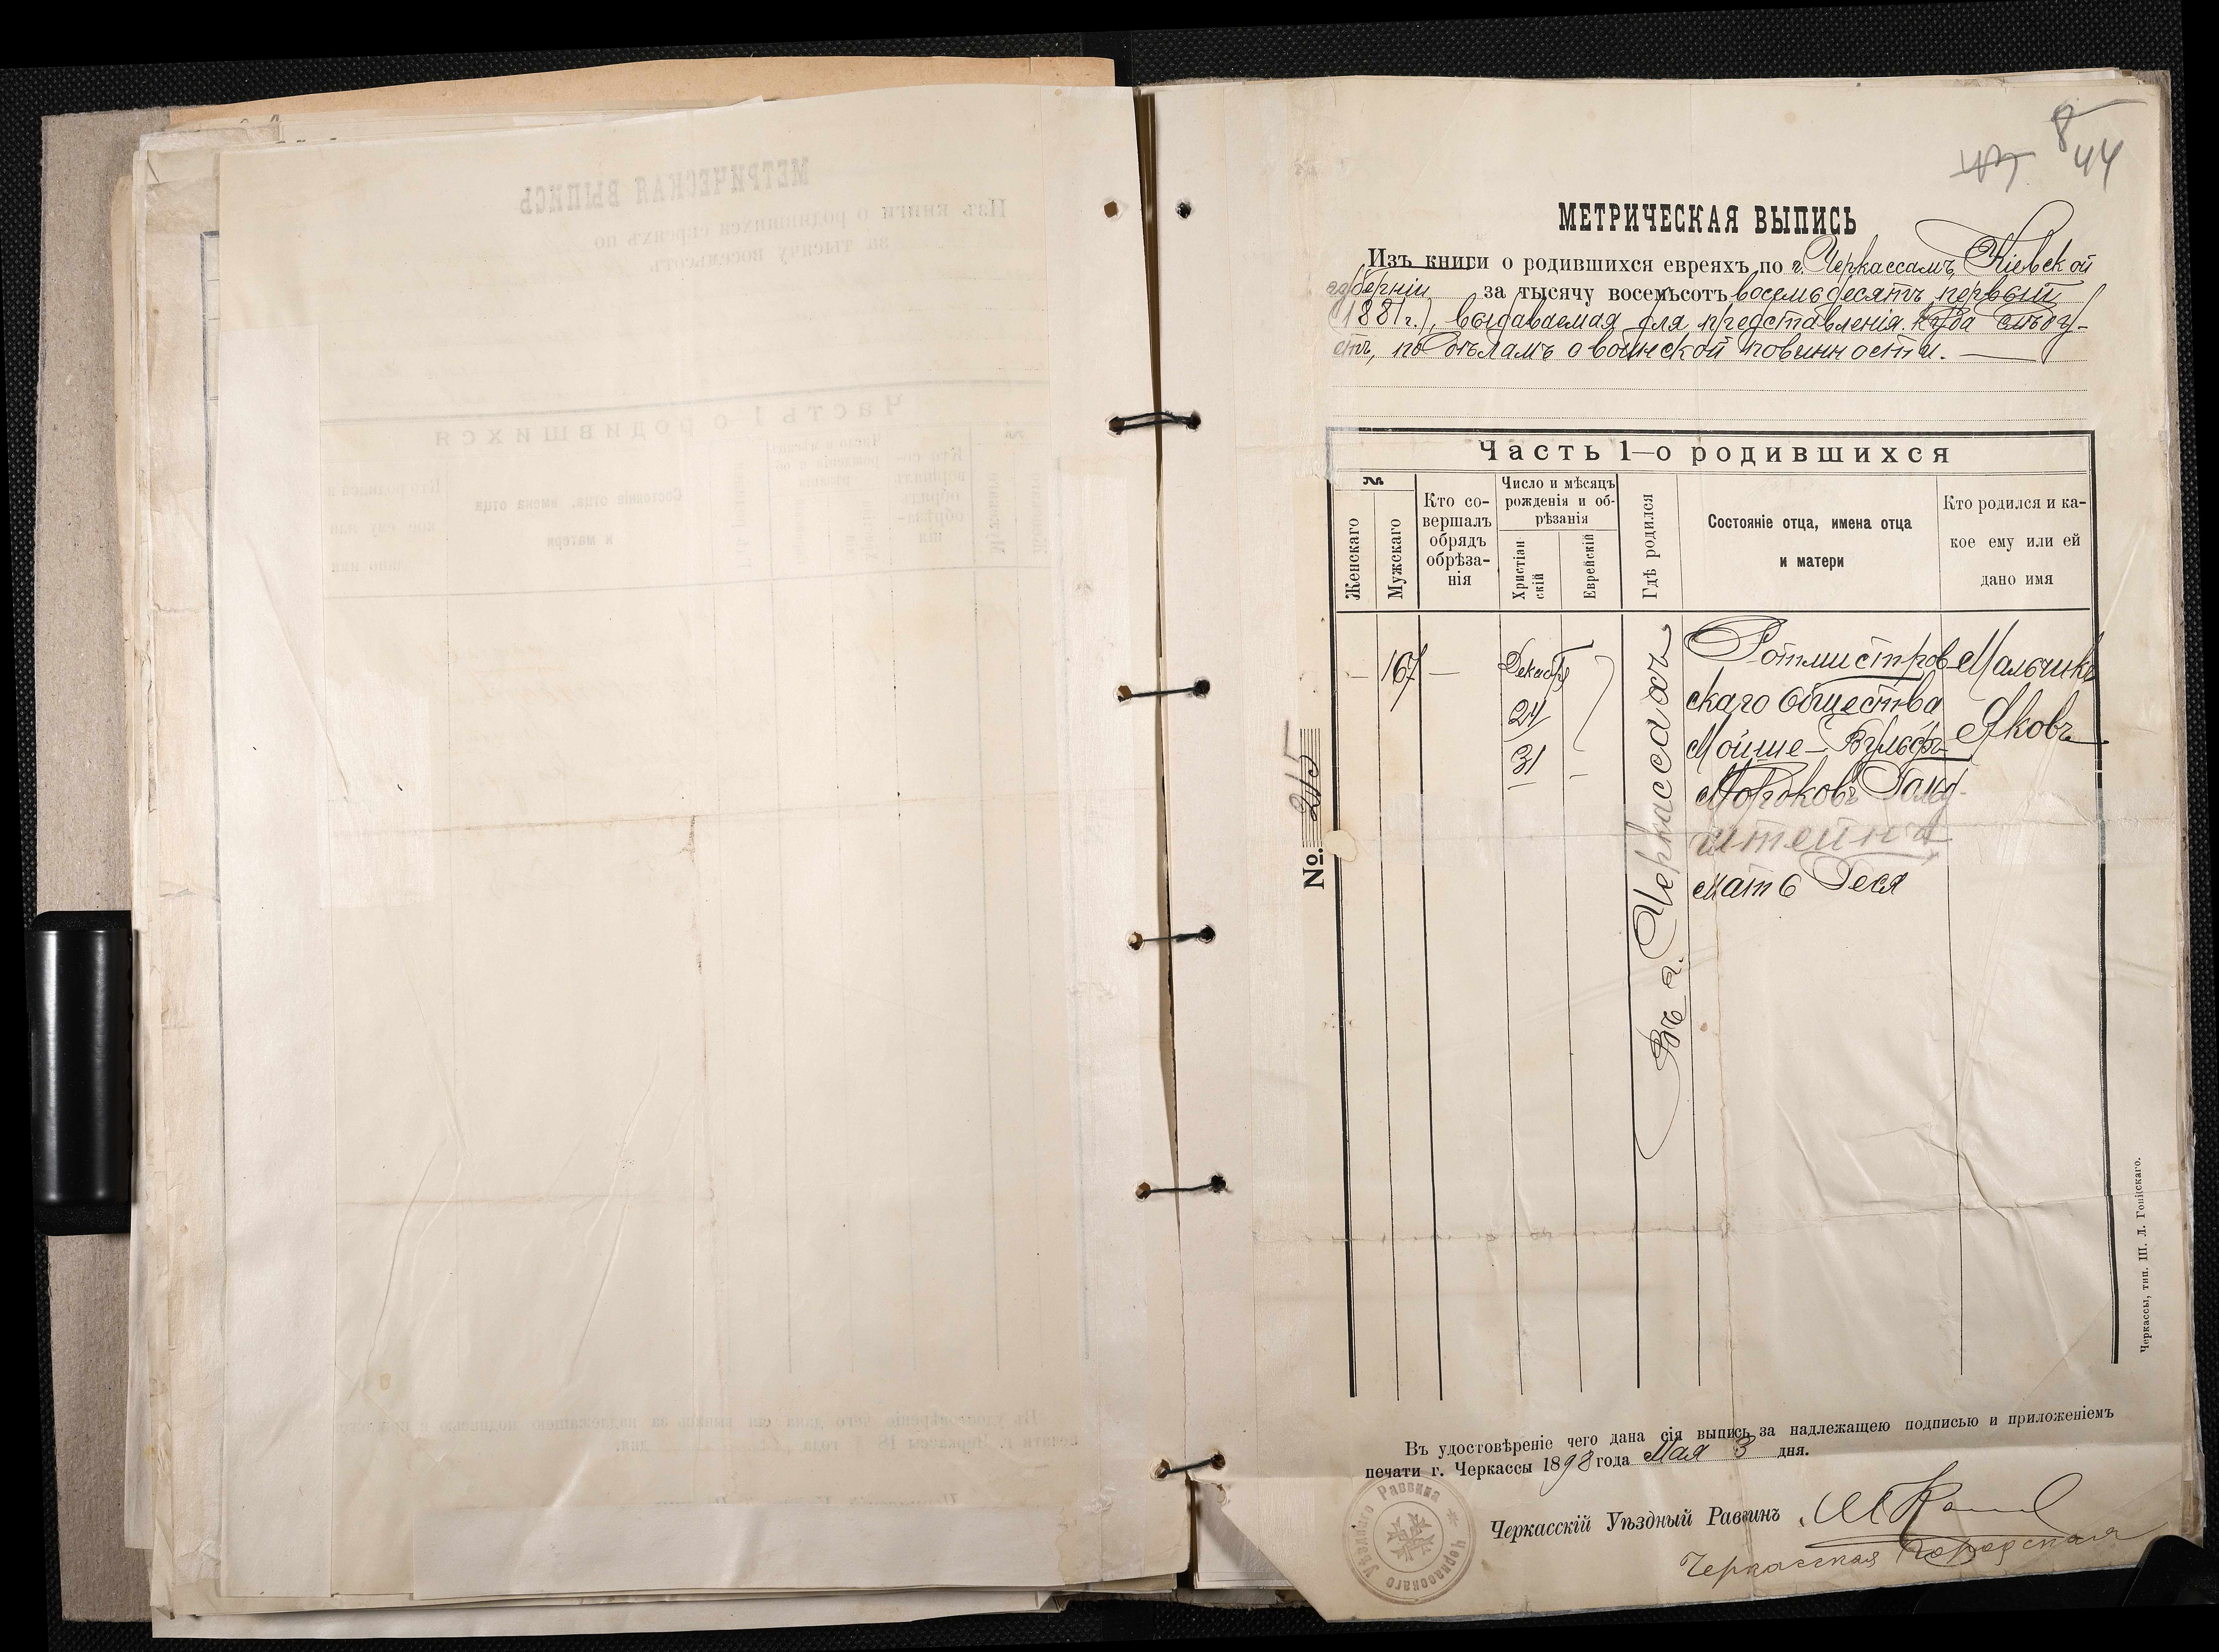 8
44
МЕТРИЧЕСКАЯ ВЫПИСЬ
Изъ книги о родившихся евреяхъ по г. Черкассамъ, Кіевской
губерніи за тысячу восемьсотъ восемьдесятъ первый
(1881 г.), выдаваемая для представленія куда слѣду-
етъ, по дѣламъ о воинской повинности.
Часть 1-о родившихся
№
Женскаго
Мужскаго
Кто со-
вершалъ
обрядъ
обрѣза-
нія
Число и мѣсяцъ
рожденія и об-
рѣзанія
Христіан
скій
Еврейскій
Гдѣ родился
Состояніе отца, имена отца
и матери
Кто родился и ка-
кое ему или ей
дано имя
— 167 —
Декабр
24
31
Въ г. Черкассахъ
Ротмистров-
скаго общества
Мойше-Вульфъ
Мордковъ Гольд-
штейнъ
мать Геся
Мальчикъ
Яковъ
No. 215
Въ удостовѣреніе чего дана сія выпись за надлежащею подписью и приложеніемъ
печати г. Черкассы 1898 года Мая 3 дня.
Черкасскій Уѣздный Раввинъ
Черкасская городская
Черкасскаго Уѣзднаго Раввина
Черкассы, тип. Ш. Л.
МЕТРИЧЕСКАЯ ВЫПИСЬ
Изъ книги о родившихся евреяхъ по
за тысячу восемьсотъ
Часть 1-о родившихся
Состояніе отца, имена отца
и матери